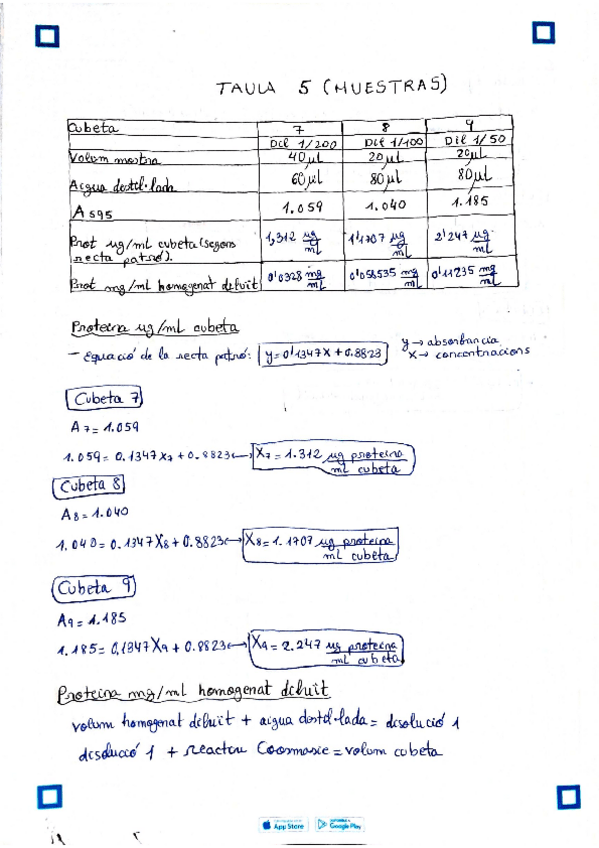 TAULA 5 (MUESTRAS)
Cubeta 7 8 9
Dil 1/200 Dil 1/100 Dil 1/50
Volum mostra 40μl 20μl 20μl
Aigua destil·lada 60μl 80μl 80μl
A595 1.059 1.040 1.185
Prot ug/ml cubeta (segons recta patró). 1,312 ug/ml 1'1707 ug/ml 2'247 ug/ml
Prot mg/ml homogenat diluït 0'0328 mg/ml 0'058535 mg/ml 0'11235 mg/ml
Proteïna ug/ml cubeta
- Equació de la recta patró: y=0'1347x + 0.8823 y → absorbancia
x → concentracions
Cubeta 7
A7 = 1.059
1.059 = 0.1347x7 + 0.8823 → X7 = 1.312 ug proteina / ml cubeta
Cubeta 8
A8 = 1.040
1.040 = 0.1347X8 + 0.8823 → X8 = 1.1707 ug proteina / ml cubeta
Cubeta 9
A9 = 1.185
1.185 = 0,1347X9 + 0.8823 → X9 = 2.247 ug proteina / ml cubeta
Proteina mg/ml homogenat diluït
volum homogenat diluït + aigua destil·lada = disolució 1
disolució 1 + reactiu Coomasie = volum cubeta
App Store Google Play